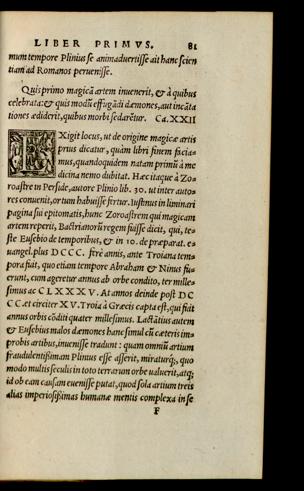 LIBER PRIMVS. 81
mum tempore Plinius se animaduertisse ait hanc scien
tiam ad Romanos peruenisse.
Quis primo magicā artem inuenerit, & à quibus
celebrata: & quis modus effugādi dæmones, aut incāta
tiones ædiderit, quibus morbi sedarētur. Ca. XXII
EXigit locus, ut de origine magicæ artis
prius dicatur, quàm libri finem facia=
mus, quandoquidem natam primū à me
dicina nemo dubitat. Hæc itaque à Zo=
roastre in Perside, autore Plinio lib. 30. ut inter auto=
res conuenit, ortum habuisse fertur. Iustinus in liminari
pagina sui epitomatis, hunc Zoroastrem qui magicam
artem reperit, Bactrianorū regem fuisse dicit, qui, te=
ste Eusebio de temporibus, & in 10. de præparat. e=
uangel. plus DCCC. ferè annis, ante Troiana tem=
pora fuit, quo etiam tempore Abraham & Ninus fu=
erunt, cum ageretur annus ab orbe condito, ter mille=
simus ac CLXXXV. At annos deinde post DC
CC. æt circiter XV. Troia à Græcis capta est, qui fuit
annus orbis cōditi quater millesimus. Lactātius autem
& Eusebius malos dæmones hanc simul cū cæteris im=
probis artibus, inuenisse tradunt: quam omniū artium
fraudulentissimam Plinius esse asserit, miraturq́;, quo
modo multis seculis in toto terrarum orbe ualuerit, atq;
id ob eam causam euenisse putat, quòd sola artium treis
alias imperiosissimas humanæ mentis complexa in se
F